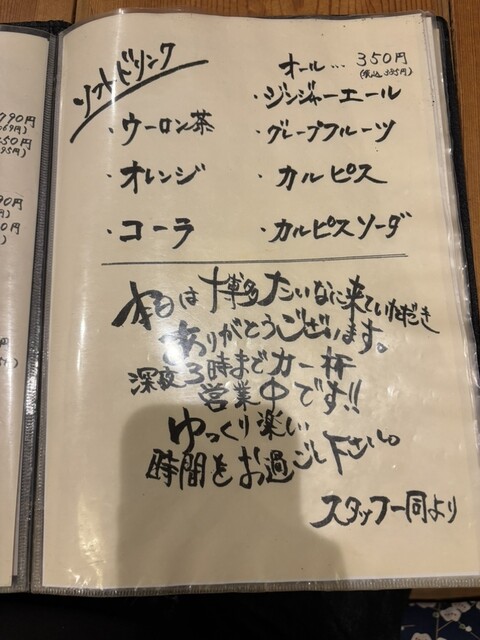 790円
069円)
50円
95円)
90円
円)
0円
円)
円
円)
ソフトドリンク
オール… 350円
(税込385円)
・ジンジャーエール
・ウーロン茶
・グレープフルーツ
・オレンジ
・カルピス
・コーラ
・カルピスソーダ
本日は博多たいなに来ていただき
ありがとうございます。
深夜3時まで力一杯
営業中です!!
ゆっくり楽しい
時間をお過ごし下さい。
スタッフ一同より